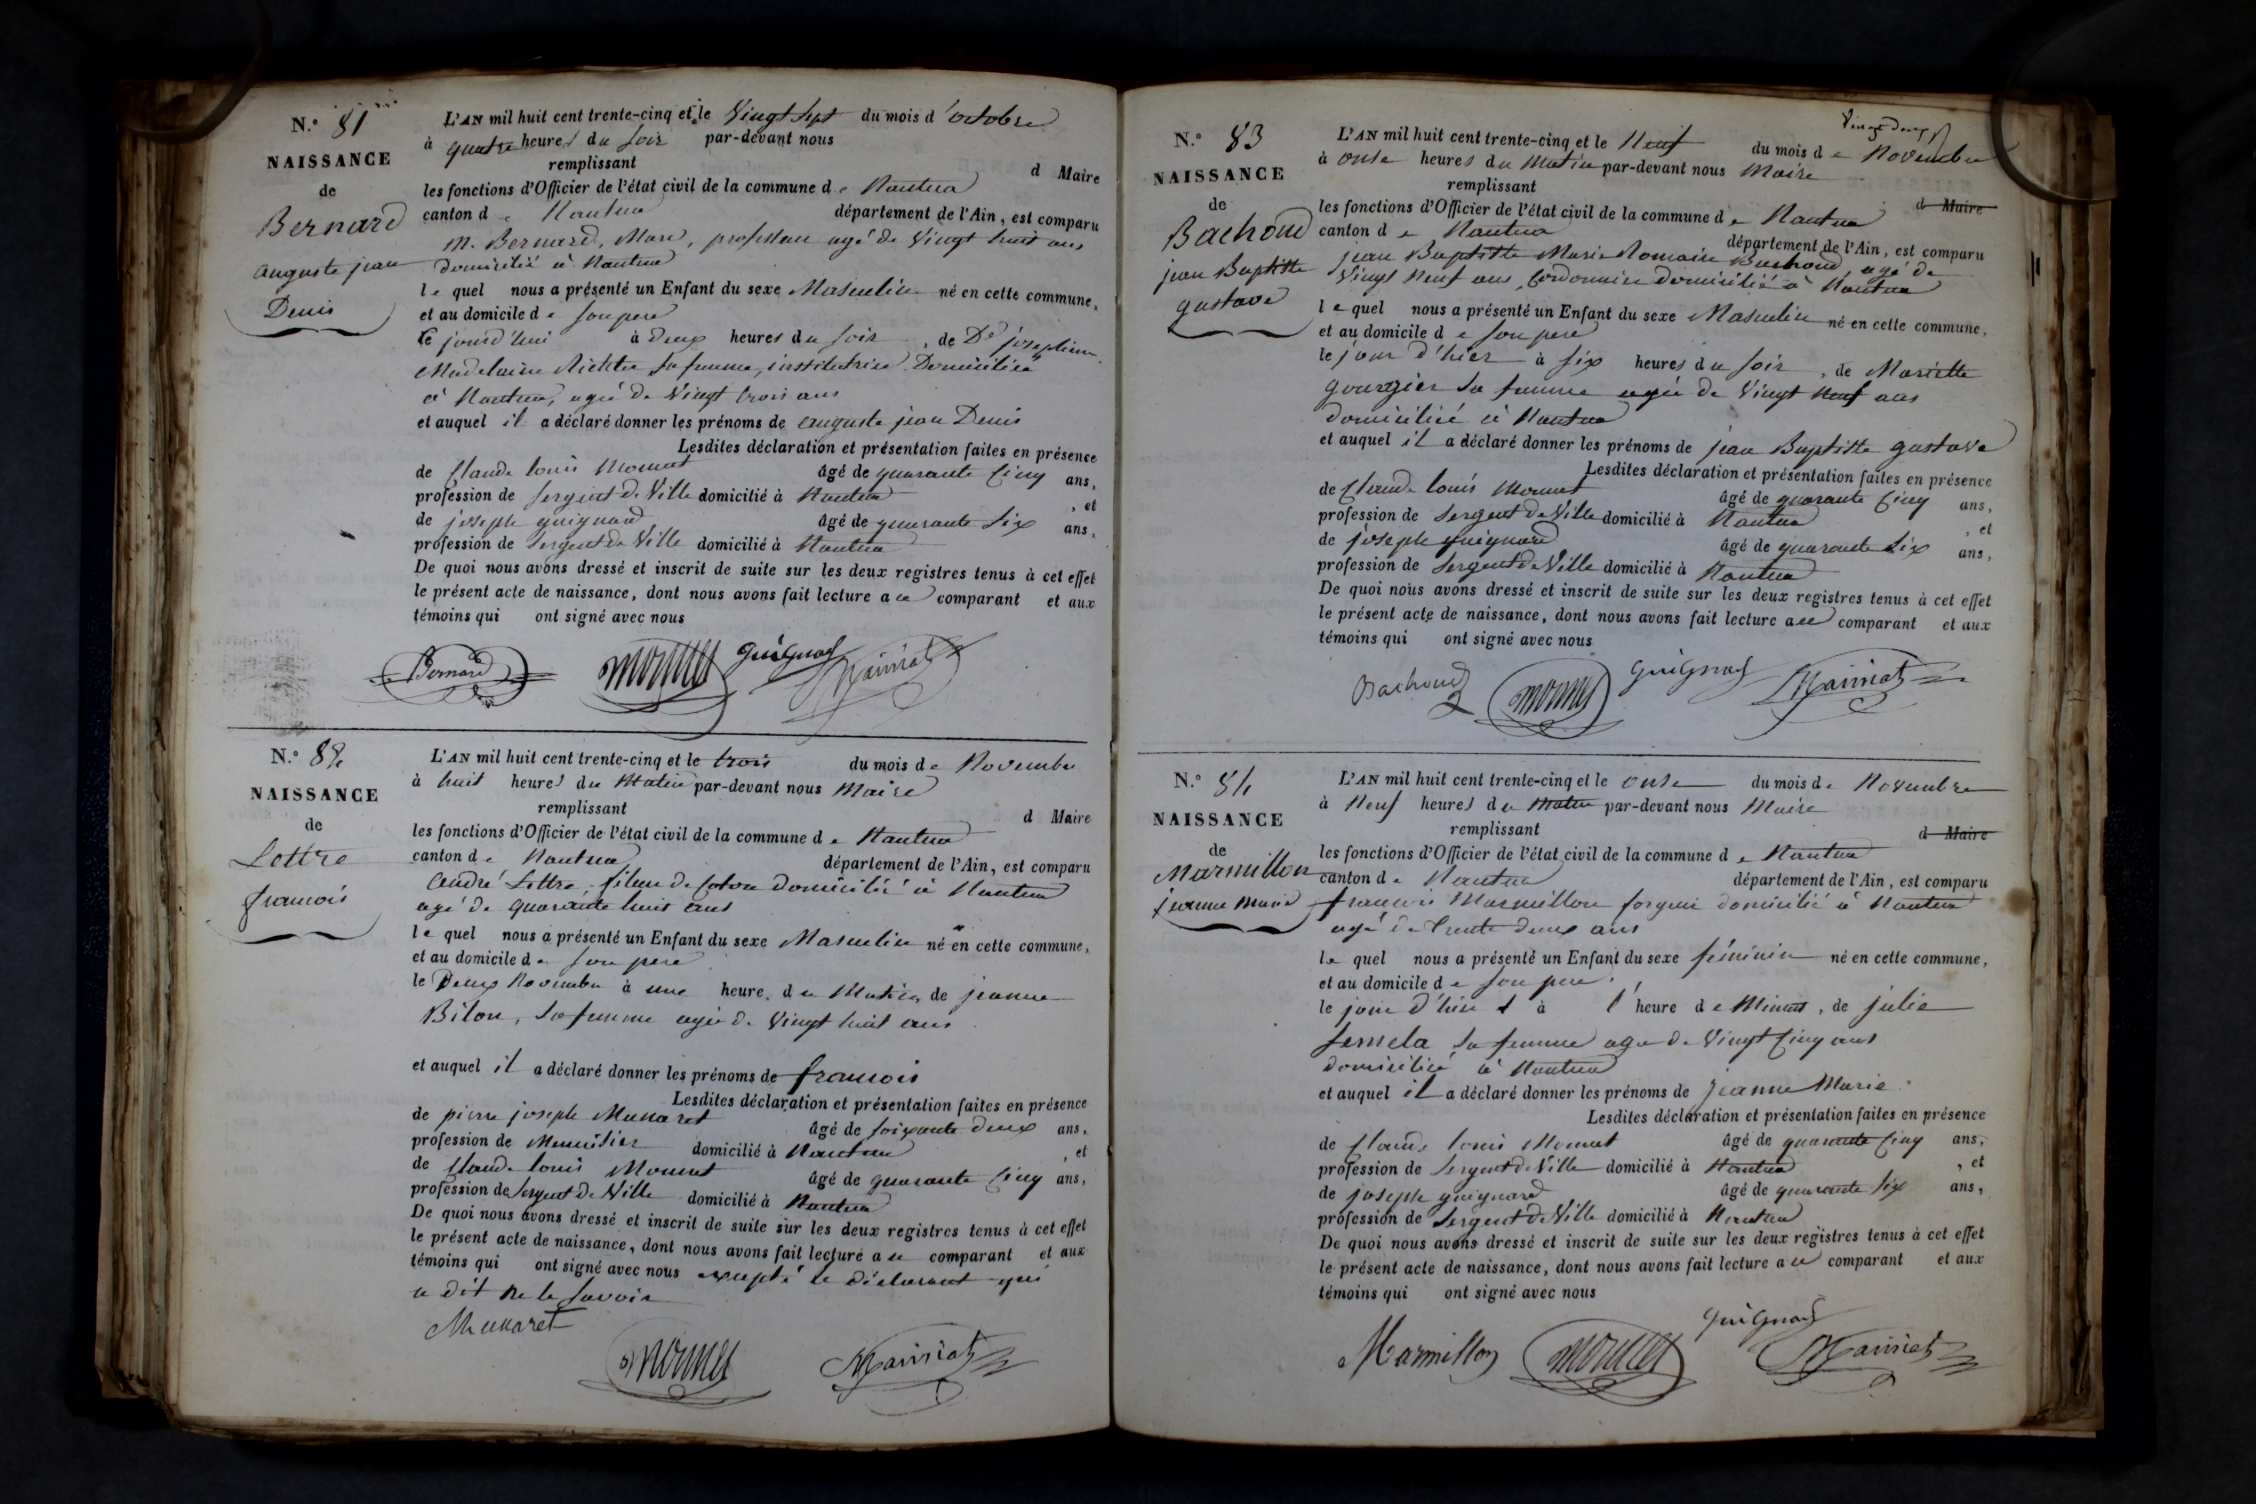 N.° 81
NAISSANCE
de
Bernard
auguste jean
Denis
L'AN mil huit cent trente-cinq et le Vingt Sept du mois d'octobre
à quatre heures du soir par-devant nous
remplissant d Maire
les fonctions d'Officier de l'état civil de la commune de Nantua
canton de Nantua département de l'Ain, est comparu
M. Bernard, Marc, professeur agé de Vingt huit ans
domicilié à Nantua
lequel nous a présenté un Enfant du sexe Masculin né en cette commune,
et au domicile de son pere
le jourd'hui à deux heures du soir, de De josephine
Madelaine Richter sa femme, institutrice Domiciliée
à Nantua, agée de Vingt trois ans
et auquel il a déclaré donner les prénoms de auguste jean Denis
Lesdites déclaration et présentation faites en présence
de Claude louis Mornet âgé de quarante Cinq ans,
profession de Sergent de Ville domicilié à Nantua, et
de joseph guignard âgé de quarante Six ans,
profession de Sergent de Ville domicilié à Nantua
De quoi nous avons dressé et inscrit de suite sur les deux registres tenus à cet effet
le présent acte de naissance, dont nous avons fait lecture au comparant et aux
témoins qui ont signé avec nous
Bernard mornet guignard
N.° 82
NAISSANCE
de
Lottre
francois
L'AN mil huit cent trente-cinq et le trois du mois de Novembre
à huit heures du Matin par-devant nous Maire
remplissant d Maire
les fonctions d'Officier de l'état civil de la commune de Nantua
canton de Nantua département de l'Ain, est comparu
André Lottre, fileur de Coton domicilié à Nantua
agé de quarante huit ans
lequel nous a présenté un Enfant du sexe Masculin né en cette commune,
et au domicile de son pere
le Deux Novembre à une heure du Matin, de jeanne
Bilon, sa femme agée de Vingt huit ans
et auquel il a déclaré donner les prénoms de francois
Lesdites déclaration et présentation faites en présence
de pierre joseph Munaret âgé de soixante deux ans,
profession de Menuisier domicilié à Nantua, et
de Claude louis Mornet âgé de quarante Cinq ans,
profession de Sergent de Ville domicilié à Nantua
De quoi nous avons dressé et inscrit de suite sur les deux registres tenus à cet effet
le présent acte de naissance, dont nous avons fait lecture au comparant et aux
témoins qui ont signé avec nous excepté le déclarant qui
a dit ne le savoir
Munaret
mornet
N.° 83
NAISSANCE
de
Bachoud
jean Baptiste
gustave
Vingt deux
L'AN mil huit cent trente-cinq et le Neuf du mois de Novembre
à onse heures du Matin par-devant nous Maire
remplissant d Maire
les fonctions d'Officier de l'état civil de la commune de Nantua
canton de Nantua département de l'Ain, est comparu
jean Baptiste Marie Romain Bachoud, agé de
Vingt Neuf ans, Cordonnier domicilié à Nantua
lequel nous a présenté un Enfant du sexe Masculin né en cette commune,
et au domicile de son pere
le jour d'hier à six heures du soir, de Mariette
gourgier sa femme agée de Vingt Neuf ans
domiciliée à Nantua
et auquel il a déclaré donner les prénoms de jean Baptiste gustave
Lesdites déclaration et présentation faites en présence
de Claude louis Mornet âgé de quarante Cinq ans,
profession de Sergent de Ville domicilié à Nantua, et
de joseph guignard âgé de quarante Six ans,
profession de Sergent de Ville domicilié à Nantua
De quoi nous avons dressé et inscrit de suite sur les deux registres tenus à cet effet
le présent acte de naissance, dont nous avons fait lecture au comparant et aux
témoins qui ont signé avec nous
Bachoud mornet guignard
N.° 84
NAISSANCE
de
Marmillon
jeanne Marie
L'AN mil huit cent trente-cinq et le onse du mois de Novembre
à Neuf heures du Matin par-devant nous Maire
remplissant d Maire
les fonctions d'Officier de l'état civil de la commune de Nantua
canton de Nantua département de l'Ain, est comparu
francois Marmillon domicilié à Nantua
agé de trente deux ans
lequel nous a présenté un Enfant du sexe féminin né en cette commune,
et au domicile de son pere
le jour d'hier à l'heure de Minuit, de julie
Semela sa femme agée de Vingt Cinq ans
domiciliée à Nantua
et auquel il a déclaré donner les prénoms de jeanne Marie
Lesdites déclaration et présentation faites en présence
de Claude louis Mornet âgé de quarante Cinq ans,
profession de Sergent de Ville domicilié à Nantua, et
de joseph guignard âgé de quarante Six ans,
profession de Sergent de Ville domicilié à Nantua
De quoi nous avons dressé et inscrit de suite sur les deux registres tenus à cet effet
le présent acte de naissance, dont nous avons fait lecture au comparant et aux
témoins qui ont signé avec nous
Marmillon mornet guignard